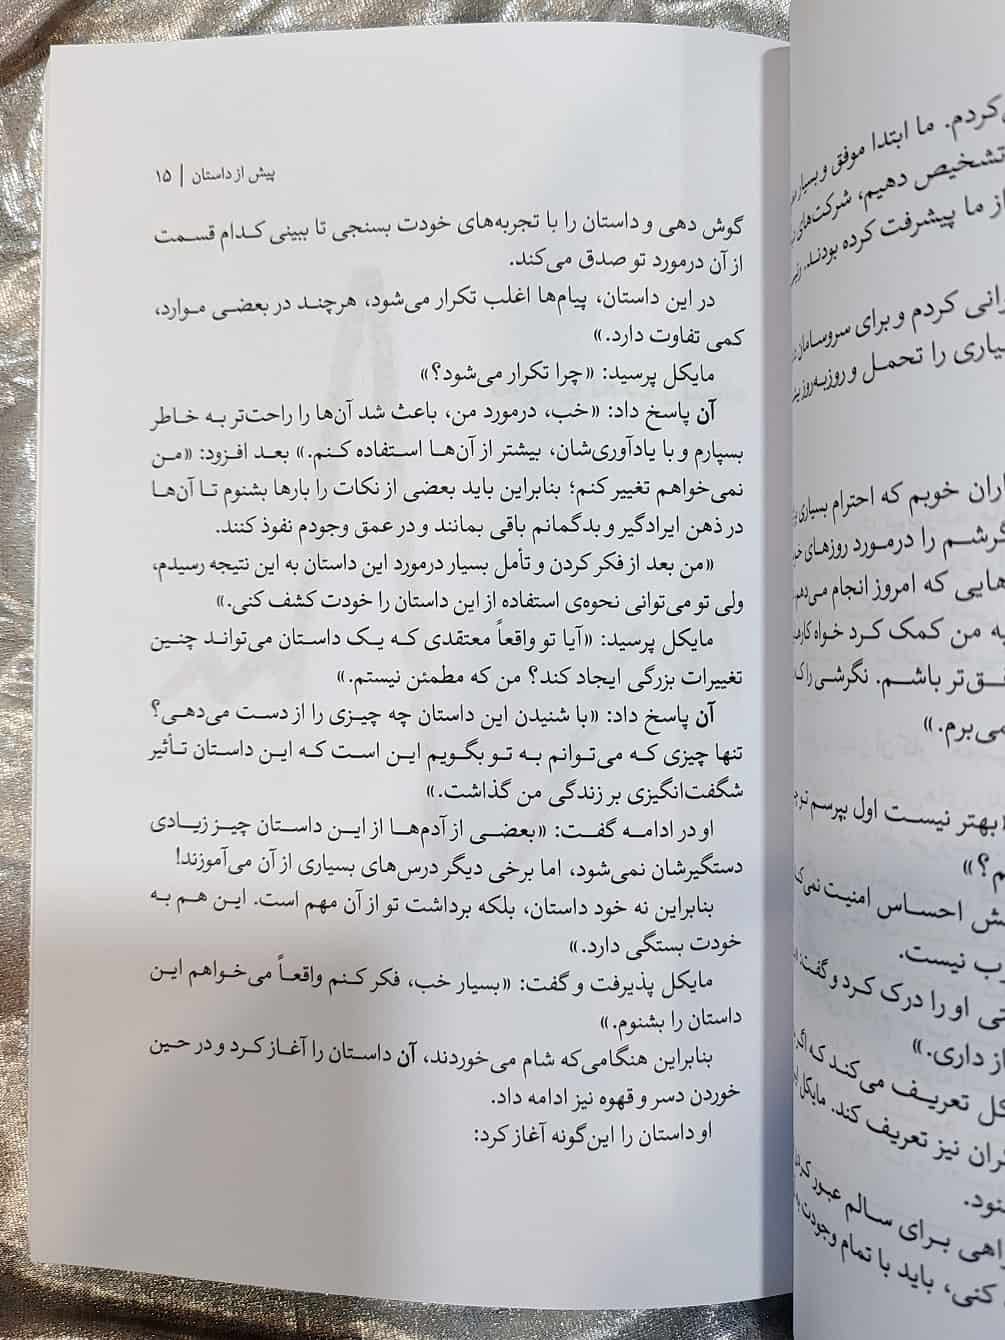 کردم. ما ابتدا موفق و بسیار
تشخیص دهیم، شرکت‌های
از ما پیشرفت کرده بودند.
کردم و برای سروسامان
را تحمل و روزبه‌روز
خوبم که احترام بسیاری
را درمورد روزهای
که امروز انجام می‌دهم
به من کمک کرد خواه
باشم. نگرشی را
می‌برم.»
بهتر نیست اول بپرسم
احساس امنیت
نیست.
او را درک کرد و گفت:
داری.»
تعریف می‌کند که اگر
نیز تعریف کند. مایکل
برای سالم عبور کردن
کنی، باید با تمام وجودت
پیش از داستان | ۱۵
گوش دهی و داستان را با تجربه‌های خودت بسنجی تا ببینی کدام قسمت
از آن درمورد تو صدق می‌کند.
در این داستان، پیام‌ها اغلب تکرار می‌شود، هرچند در بعضی موارد،
کمی تفاوت دارد.»
مایکل پرسید: «چرا تکرار می‌شود؟»
آن پاسخ داد: «خب، درمورد من، باعث شد آن‌ها را راحت‌تر به خاطر
بسپارم و با یادآوری‌شان، بیشتر از آن‌ها استفاده کنم.» بعد افزود: «من
نمی‌خواهم تغییر کنم؛ بنابراین باید بعضی از نکات را بارها بشنوم تا آن‌ها
در ذهن ایرادگیر و بدگمانم باقی بمانند و در عمق وجودم نفوذ کنند.
«من بعد از فکر کردن و تأمل بسیار درمورد این داستان به این نتیجه رسیدم،
ولی تو می‌توانی نحوه‌ی استفاده از این داستان را خودت کشف کنی.»
مایکل پرسید: «آیا تو واقعاً معتقدی که یک داستان می‌تواند چنین
تغییرات بزرگی ایجاد کند؟ من که مطمئن نیستم.»
آن پاسخ داد: «با شنیدن این داستان چه چیزی را از دست می‌دهی؟
تنها چیزی که می‌توانم به تو بگویم این است که این داستان تأثیر
شگفت‌انگیزی بر زندگی من گذاشت.»
او در ادامه گفت: «بعضی از آدم‌ها از این داستان چیز زیادی
دستگیرشان نمی‌شود، اما برخی دیگر درس‌های بسیاری از آن می‌آموزند!
بنابراین نه خود داستان، بلکه برداشت تو از آن مهم است. این هم به
خودت بستگی دارد.»
مایکل پذیرفت و گفت: «بسیار خب، فکر کنم واقعاً می‌خواهم این
داستان را بشنوم.»
بنابراین هنگامی‌که شام می‌خوردند، آن داستان را آغاز کرد و در حین
خوردن دسر و قهوه نیز ادامه داد.
او داستان را این‌گونه آغاز کرد: